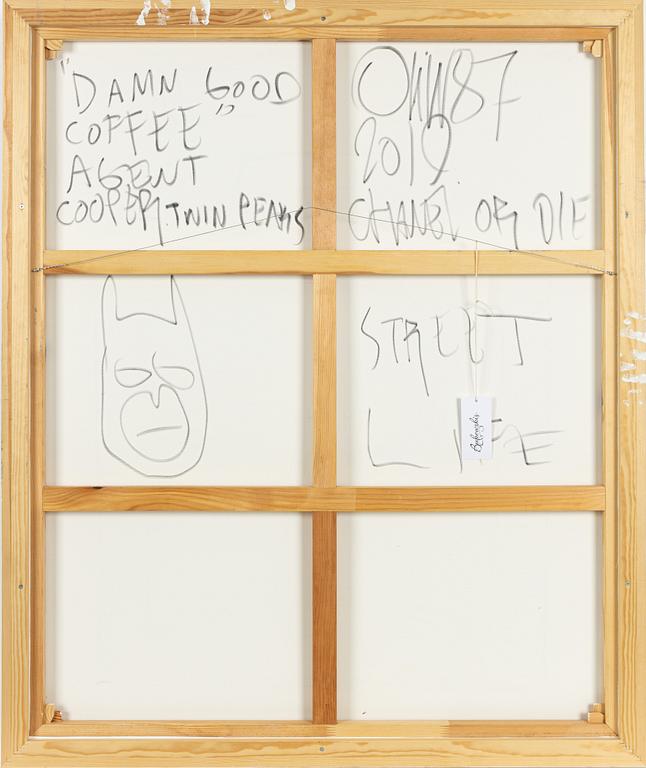 "DAMN GOOD
COFFEE"
AGENT
COOPER. TWIN PEAKS
2019.
CHANEL OR DIE
STREET
LIFE
Bukowskis